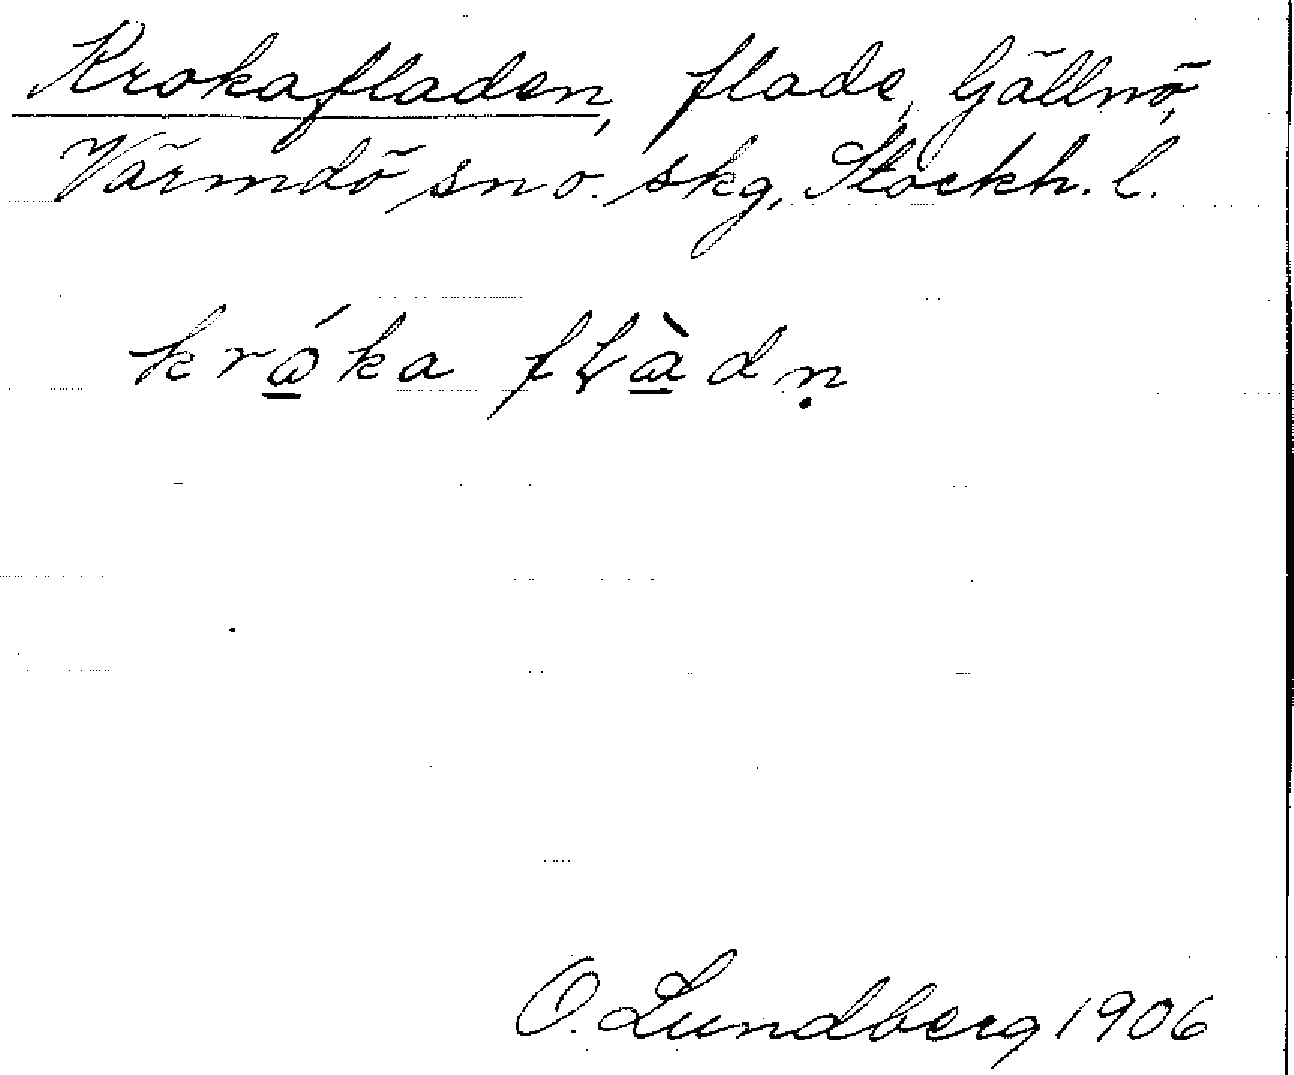 Krokafladen, flade, Gällnö,
Värmdö sn o. skg, Stockh. l.
krώ̲ka fɽà̲dn̥
O. Lundberg 1906